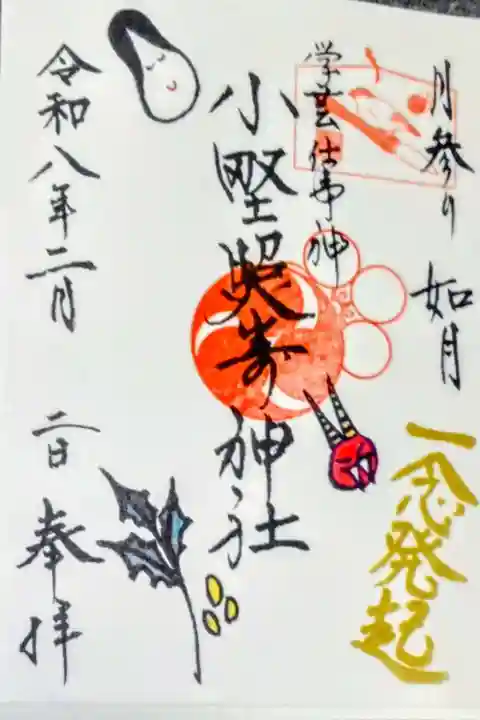 月参り 如月
一念発起
学芸仕事神
小野照崎神社
令和八年二月 二日 奉拝